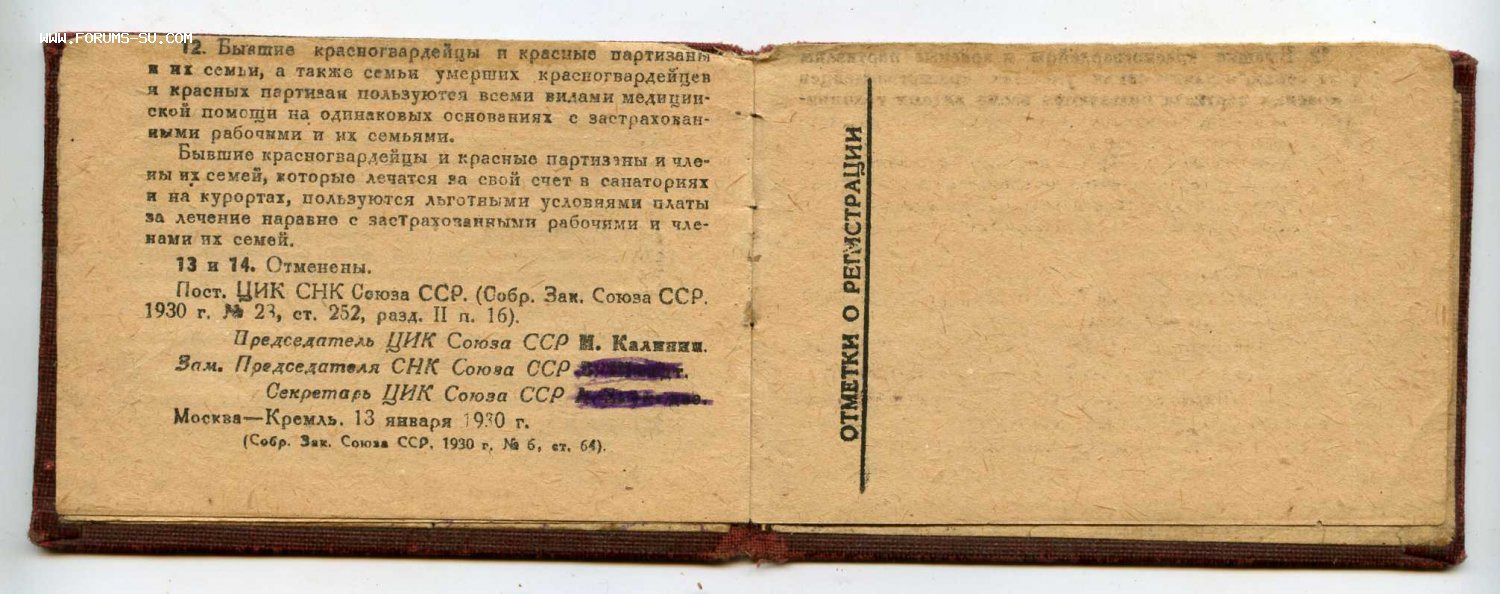 www.forums-su.com
12. Бывшие красногвардейцы и красные партизаны
и их семьи, а также семьи умерших красногвардейцев
и красных партизан пользуются всеми видами медицин-
ской помощи на одинаковых основаниях с застрахован-
ными рабочими и их семьями.
Бывшие красногвардейцы и красные партизаны и чле-
ны их семей, которые лечатся за свой счет в санаториях
и на курортах, пользуются льготными условиями платы
за лечение наравне с застрахованными рабочими и чле-
нами их семей.
13 и 14. Отменены.
Пост. ЦИК СНК Союза ССР. (Собр. Зак. Союза ССР.
1930 г. № 23, ст. 252, разд. II п. 16).
Председатель ЦИК Союза ССР М. Калинин.
Зам. Председателя СНК Союза ССР
Секретарь ЦИК Союза ССР
Москва—Кремль. 13 января 1930 г.
(Собр. Зак. Союза ССР. 1930 г. № 6, ст. 64).
ОТМЕТКИ О РЕГИСТРАЦИИ